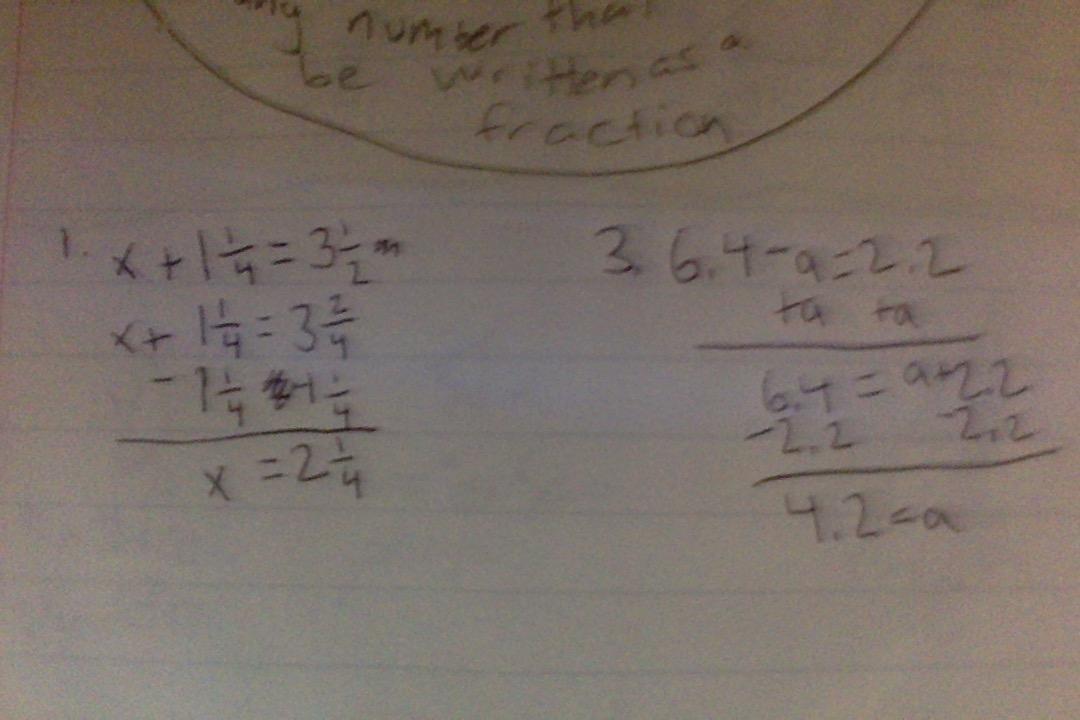 any number that
be written as a
fraction
1. x + 1 1/4 = 3 1/2
x + 1 1/4 = 3 2/4
- 1 1/4 -1 1/4
x = 2 1/4
3. 6.4 - a = 2.2
+a +a
6.4 = a+2.2
-2.2 -2.2
4.2 = a